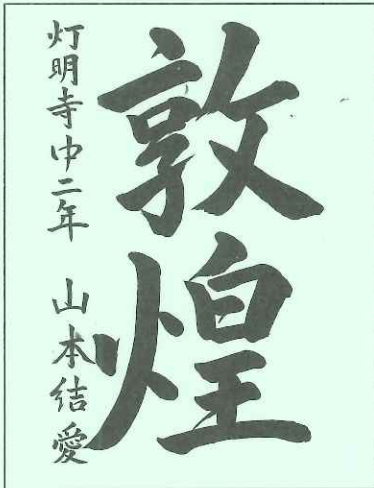 敦煌
灯明寺中二年 山本結愛